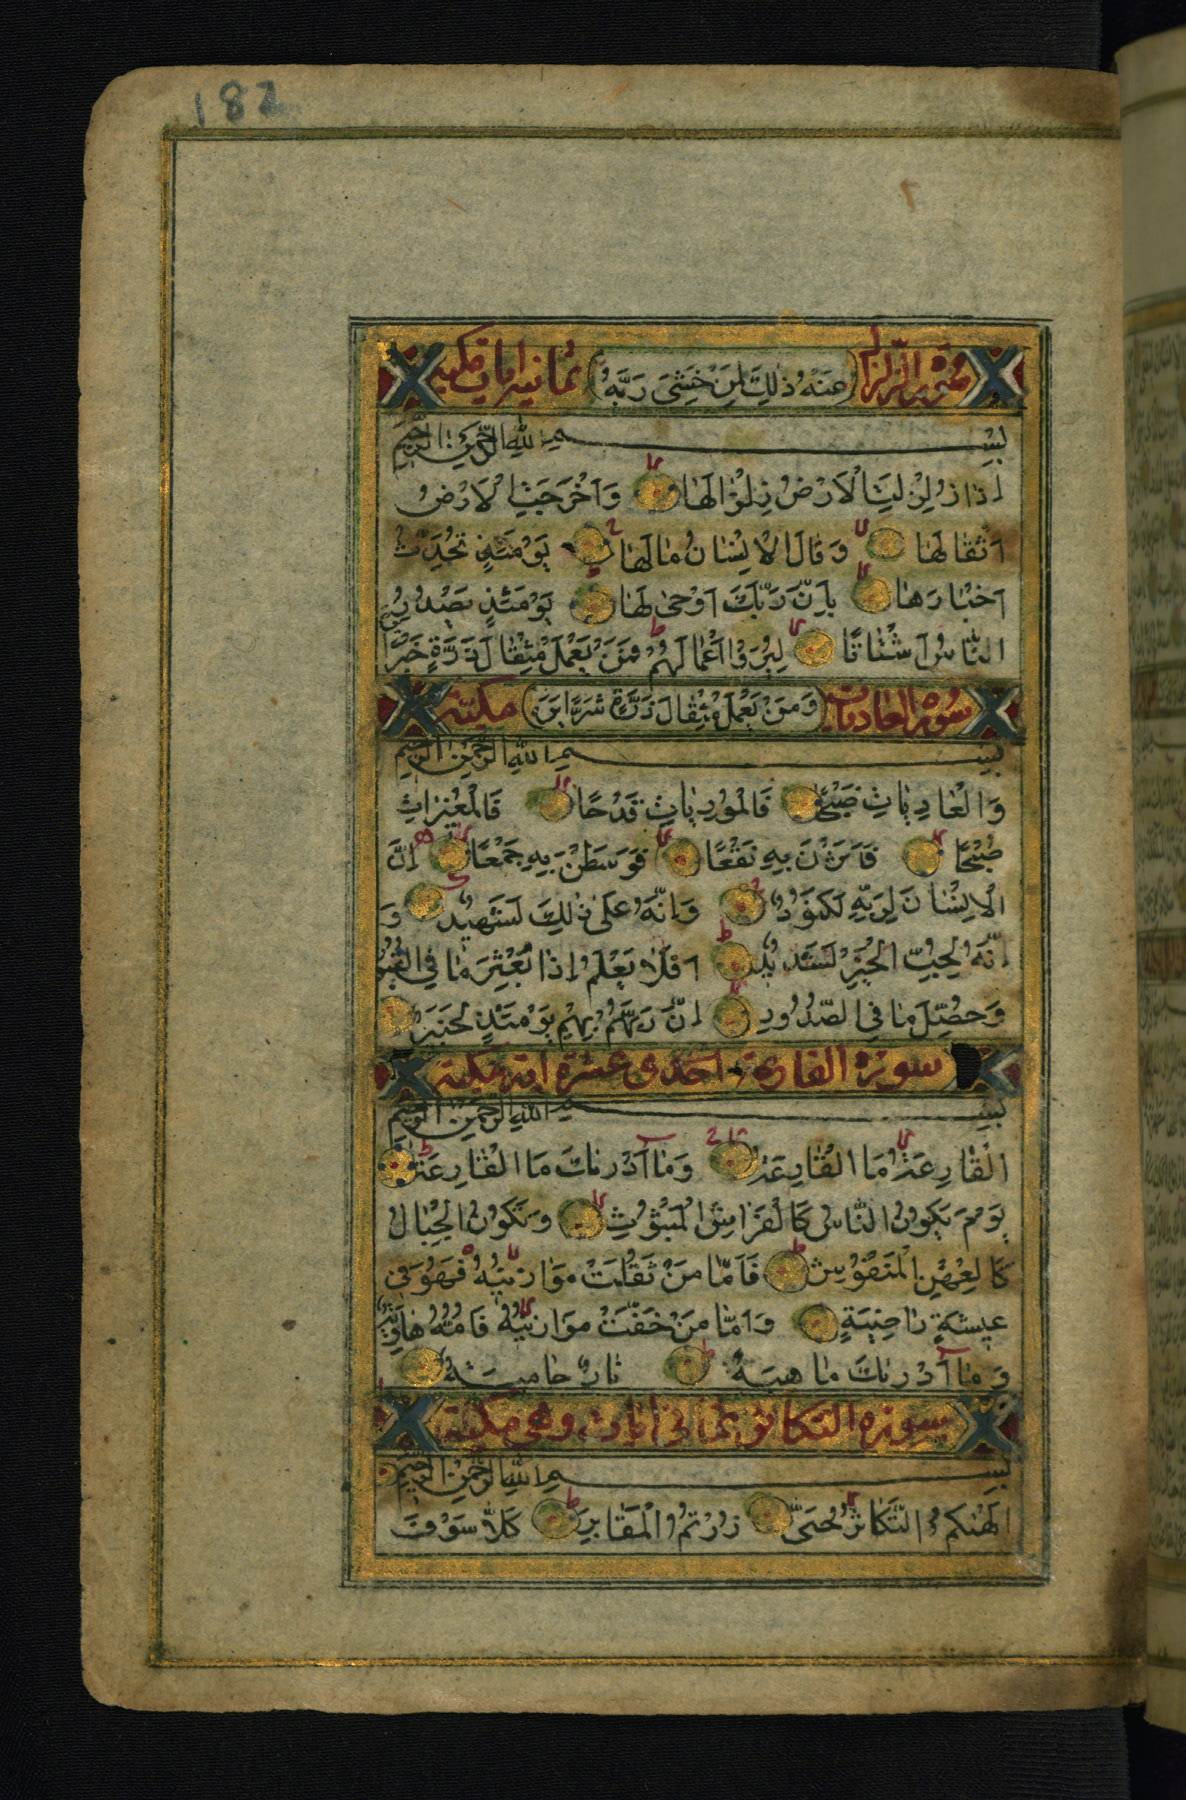 182
سورة الزلزال عَنْهُ ذٰلِكَ لِمَنْ خَشِيَ رَبَّهُ ثمانية ايات مكية
بسم الله الرحمن الرحيم
اِذَا زُلْزِلَتِ الْاَرْضُ زِلْزَالَهَا وَاَخْرَجَتِ الْاَرْضُ
اَثْقَالَهَا وَقَالَ الْاِنْسَانُ مَالَهَا يَوْمَئِذٍ تُحَدِّثُ
اَخْبَارَهَا بِاَنَّ رَبَّكَ اَوْحٰى لَهَا يَوْمَئِذٍ يَصْدُرُ
النَّاسُ اَشْتَاتًا لِيُرَوْا اَعْمَالَهُمْ فَمَنْ يَعْمَلْ مِثْقَالَ ذَرَّةٍ خَيْرًا
سورة العاديات وَمَنْ يَعْمَلْ مِثْقَالَ ذَرَّةٍ شَرًّا يَرَهُ مكية
بسم الله الرحمن الرحيم
وَالْعَادِيَاتِ ضَبْحًا فَالْمُورِيَاتِ قَدْحًا فَالْمُغِيرَاتِ
صُبْحًا فَاَثَرْنَ بِهِ نَقْعًا فَوَسَطْنَ بِهِ جَمْعًا اِنَّ
الْاِنْسَانَ لِرَبِّهِ لَكَنُودٌ وَاِنَّهُ عَلٰى ذٰلِكَ لَشَهِيدٌ وَ
اِنَّهُ لِحُبِّ الْخَيْرِ لَشَدِيدٌ اَفَلَا يَعْلَمُ اِذَا بُعْثِرَ مَا فِي الْقُبُورِ
وَحُصِّلَ مَا فِي الصُّدُورِ اِنَّ رَبَّهُمْ بِهِمْ يَوْمَئِذٍ لَخَبِيرٌ
سورة القارعة احدى عشرة اية مكية
بسم الله الرحمن الرحيم
اَلْقَارِعَةُ مَا الْقَارِعَةُ وَمَا اَدْرٰىكَ مَا الْقَارِعَةُ
يَوْمَ يَكُونُ النَّاسُ كَالْفَرَاشِ الْمَبْثُوثِ وَتَكُونُ الْجِبَالُ
كَالْعِهْنِ الْمَنْفُوشِ فَاَمَّا مَنْ ثَقُلَتْ مَوَازِينُهُ فَهُوَ فِي
عِيشَةٍ رَاضِيَةٍ وَاَمَّا مَنْ خَفَّتْ مَوَازِينُهُ فَاُمُّهُ هَاوِيَةٌ
وَمَا اَدْرٰىكَ مَا هِيَهْ نَارٌ حَامِيَةٌ
سورة التكاثر ثماني ايات وهي مكية
بسم الله الرحمن الرحيم
اَلْهٰىكُمُ التَّكَاثُرُ حَتّٰى زُرْتُمُ الْمَقَابِرَ كَلَّا سَوْفَ